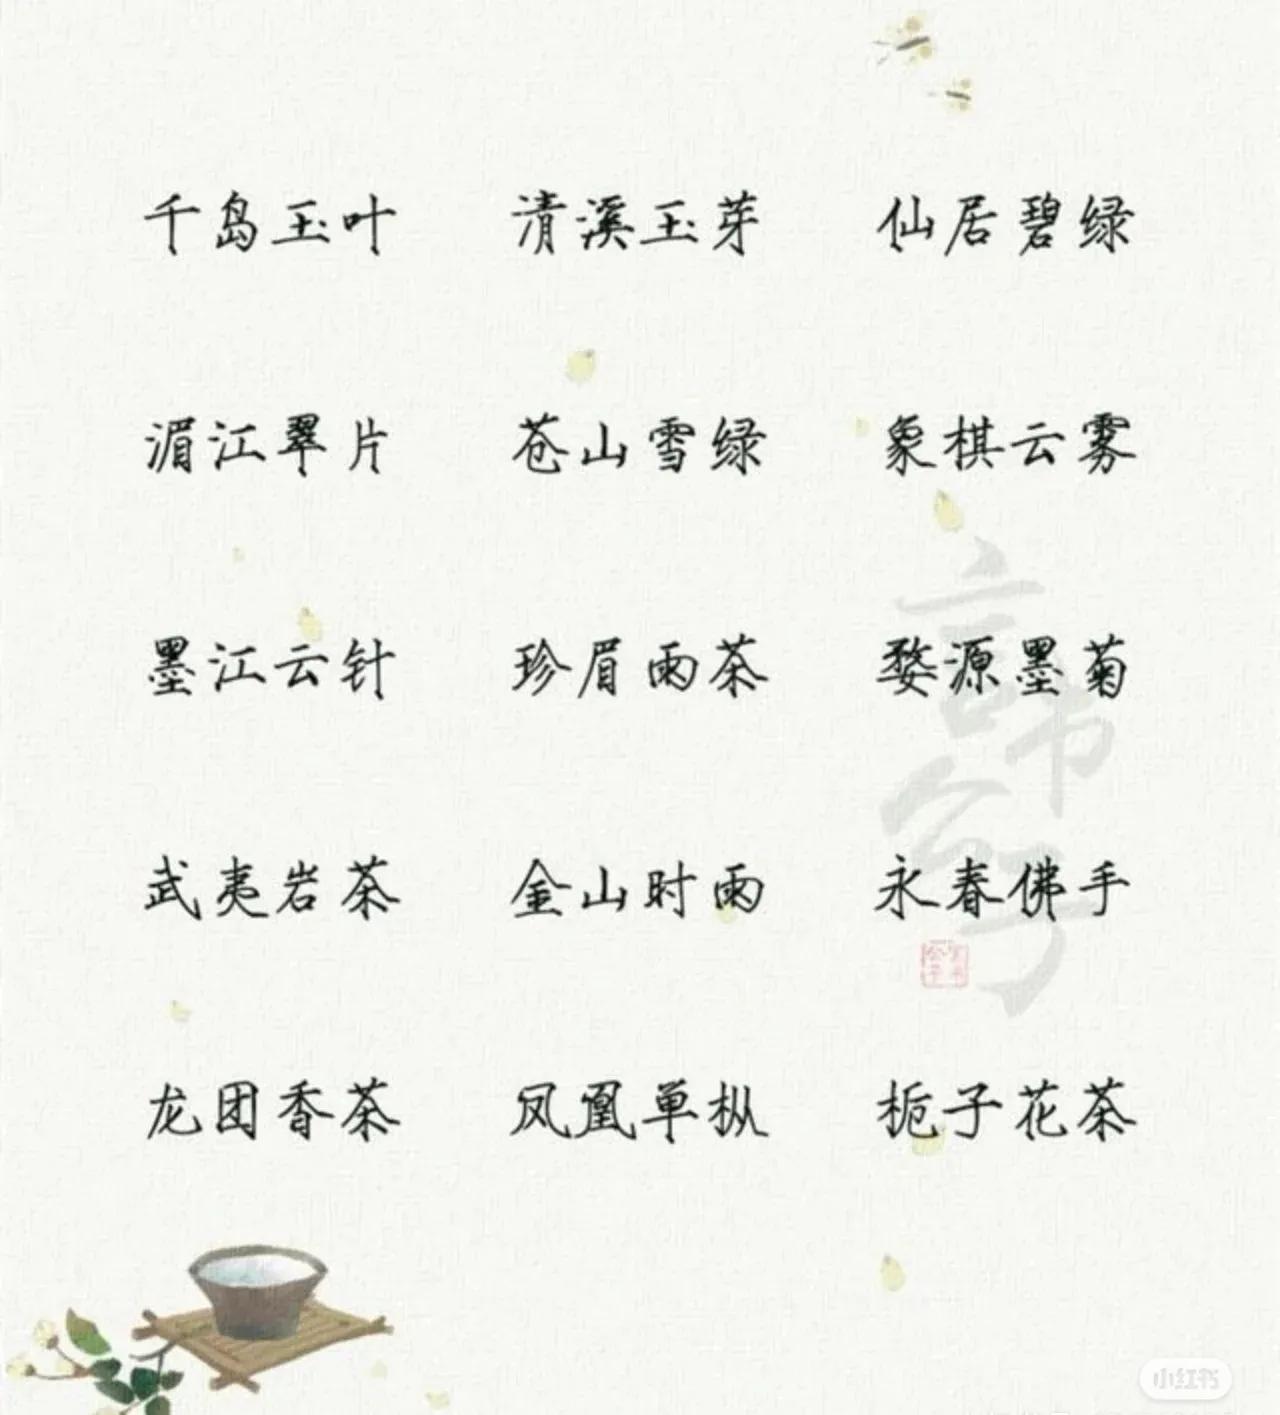 千岛玉叶 清溪玉芽 仙居碧绿
湄江翠片 苍山雪绿 象棋云雾
墨江云针 珍眉雨茶 婺源墨菊
武夷岩茶 金山时雨 永春佛手
龙团香茶 凤凰单枞 栀子花茶
言韩公子
小红书